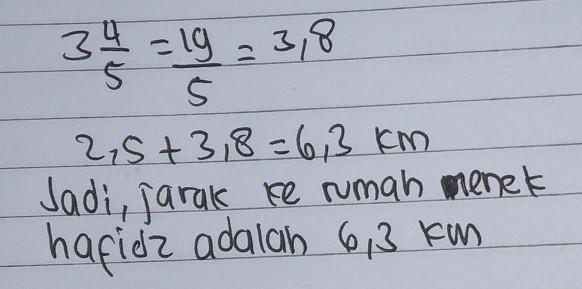 3 4/5 = 19/5 = 3,8
2,5 + 3,8 = 6,3 km
Jadi, jarak ke rumah nenek
hafidz adalah 6,3 km